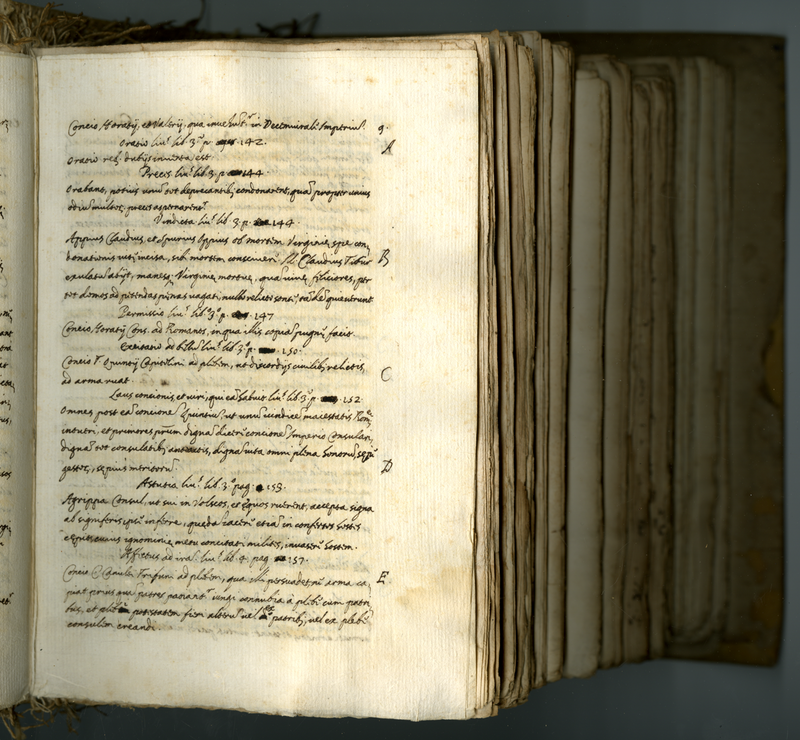 Concio Horatij, et Valerij, qua inuehunt.r in Decemuirale Imperiu. 9.
Oratio liu. lib. 3.º p. 142. A
Oratio reb. dubijs inuenta est.
Preces liu. lib. 3. p. 144.
Orabant, potius unu tot deprecantib condonarent, qua propter unius
odiu multor. preces aspernarent.
Vindicta liu. lib. 3. p. 144.
Appius Claudius, et Spurius Oppius ob mortem Virginie, spe con
donationis uersa, sibi mortem consciuere. M. Claudius Tibur B
exulatu abijt, manes Virginie mortue, qua uiue feliciores, per
tot domos ad petendas penas uagati, nullo relicto sonti, tade quieuerunt
Permissio liu. lib. 3.º p. 147
Concio Horatij Cons. ad Romanos, in qua illis copia pugne facit.
Excitatio ad bellu liu. lib. 3. p. 150.
Concio T. Quintij Capitolini ad plebem, ut discordijs ciuilib relictis, C
ad arma ruat.
Laus concionis, et uiri, qui ea habuit liu. lib. 3.º p. 152.
Omnes post ea concione Quintiu, ut unu uindice maiestatis Rom.
intueri, et primores patrum digna dicere concione Imperio Consulari,
digna tot consulatib anteactis, digna uita omni plena honoru, sepe D
gestor, sepius meritoru.
Astutia liu. lib. 3.º pag. 153.
Agrippa Consul, ut sui in Volscos, et Equos ruerent, accepta signa
ab signiferis ipse inferre, queda iacere etia in confertos hostes
cepit, cuius ignominie metu concitati milites, inuasere hostem.
Affectus ad ira liu. lib. 4. pag. 157.
Concio C. Canulei Tribuni ad plebem, qua illi persuadet, ne arma ca E
piat prius qua patres patiant. iungi connubia a plebe cum patri
bus, et plebi potestatem fieri alteru uel ex patrib, uel ex plebe
consulem creandi.